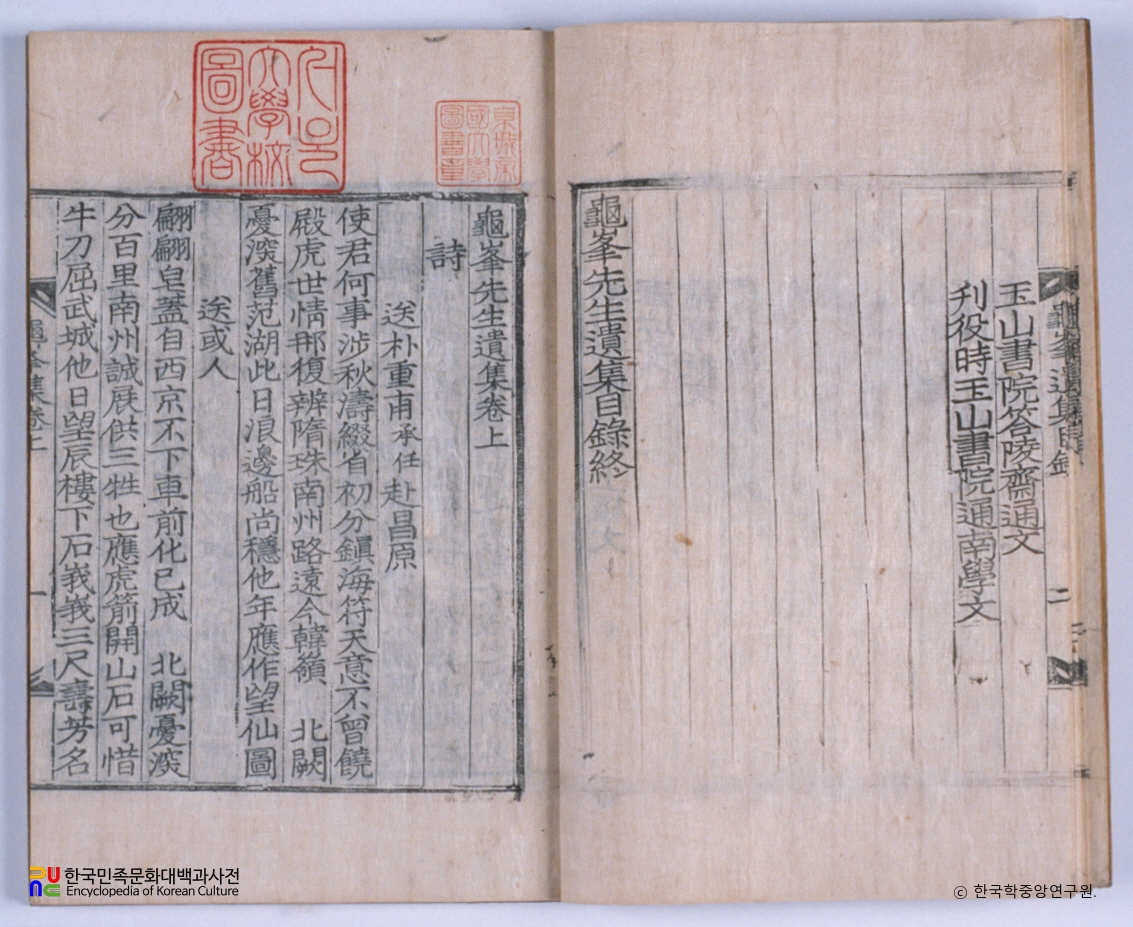 龜峯遺集目錄
二
玉山書院答陵齋通文
刋役時玉山書院通南學文
龜峯先生遺集目錄終
龜峯先生遺集卷上
詩
送朴重甫承任赴昌原
使君何事涉秋濤綴省初分鎮海符天意不曾饒
殿虎世情那復辨隋珠南州路遠今韓嶺 北闕
憂深舊范湖此日浪邊船尚穩他年應作望仙圖
送或人
翩翩皂蓋自西京不下車前化已成 北闕憂深
分百里南州誠展供三牲也應虎箭開山石可惜
牛刀屈武城他日望辰樓下石峩峩三尺壽芳名
龜峯集卷上
一
大學校
圖書
國大學
圖書章
한국민족문화대백과사전
Encyclopedia of Korean Culture
© 한국학중앙연구원.